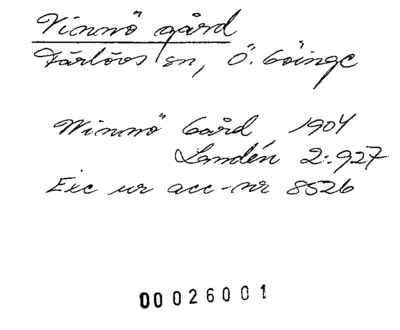 Vinnö gård
Färlövs sn, Ö. Göinge
Winnö Gård 1904
Landén 2:-927
Exc ur acc-nr 8526
00026001